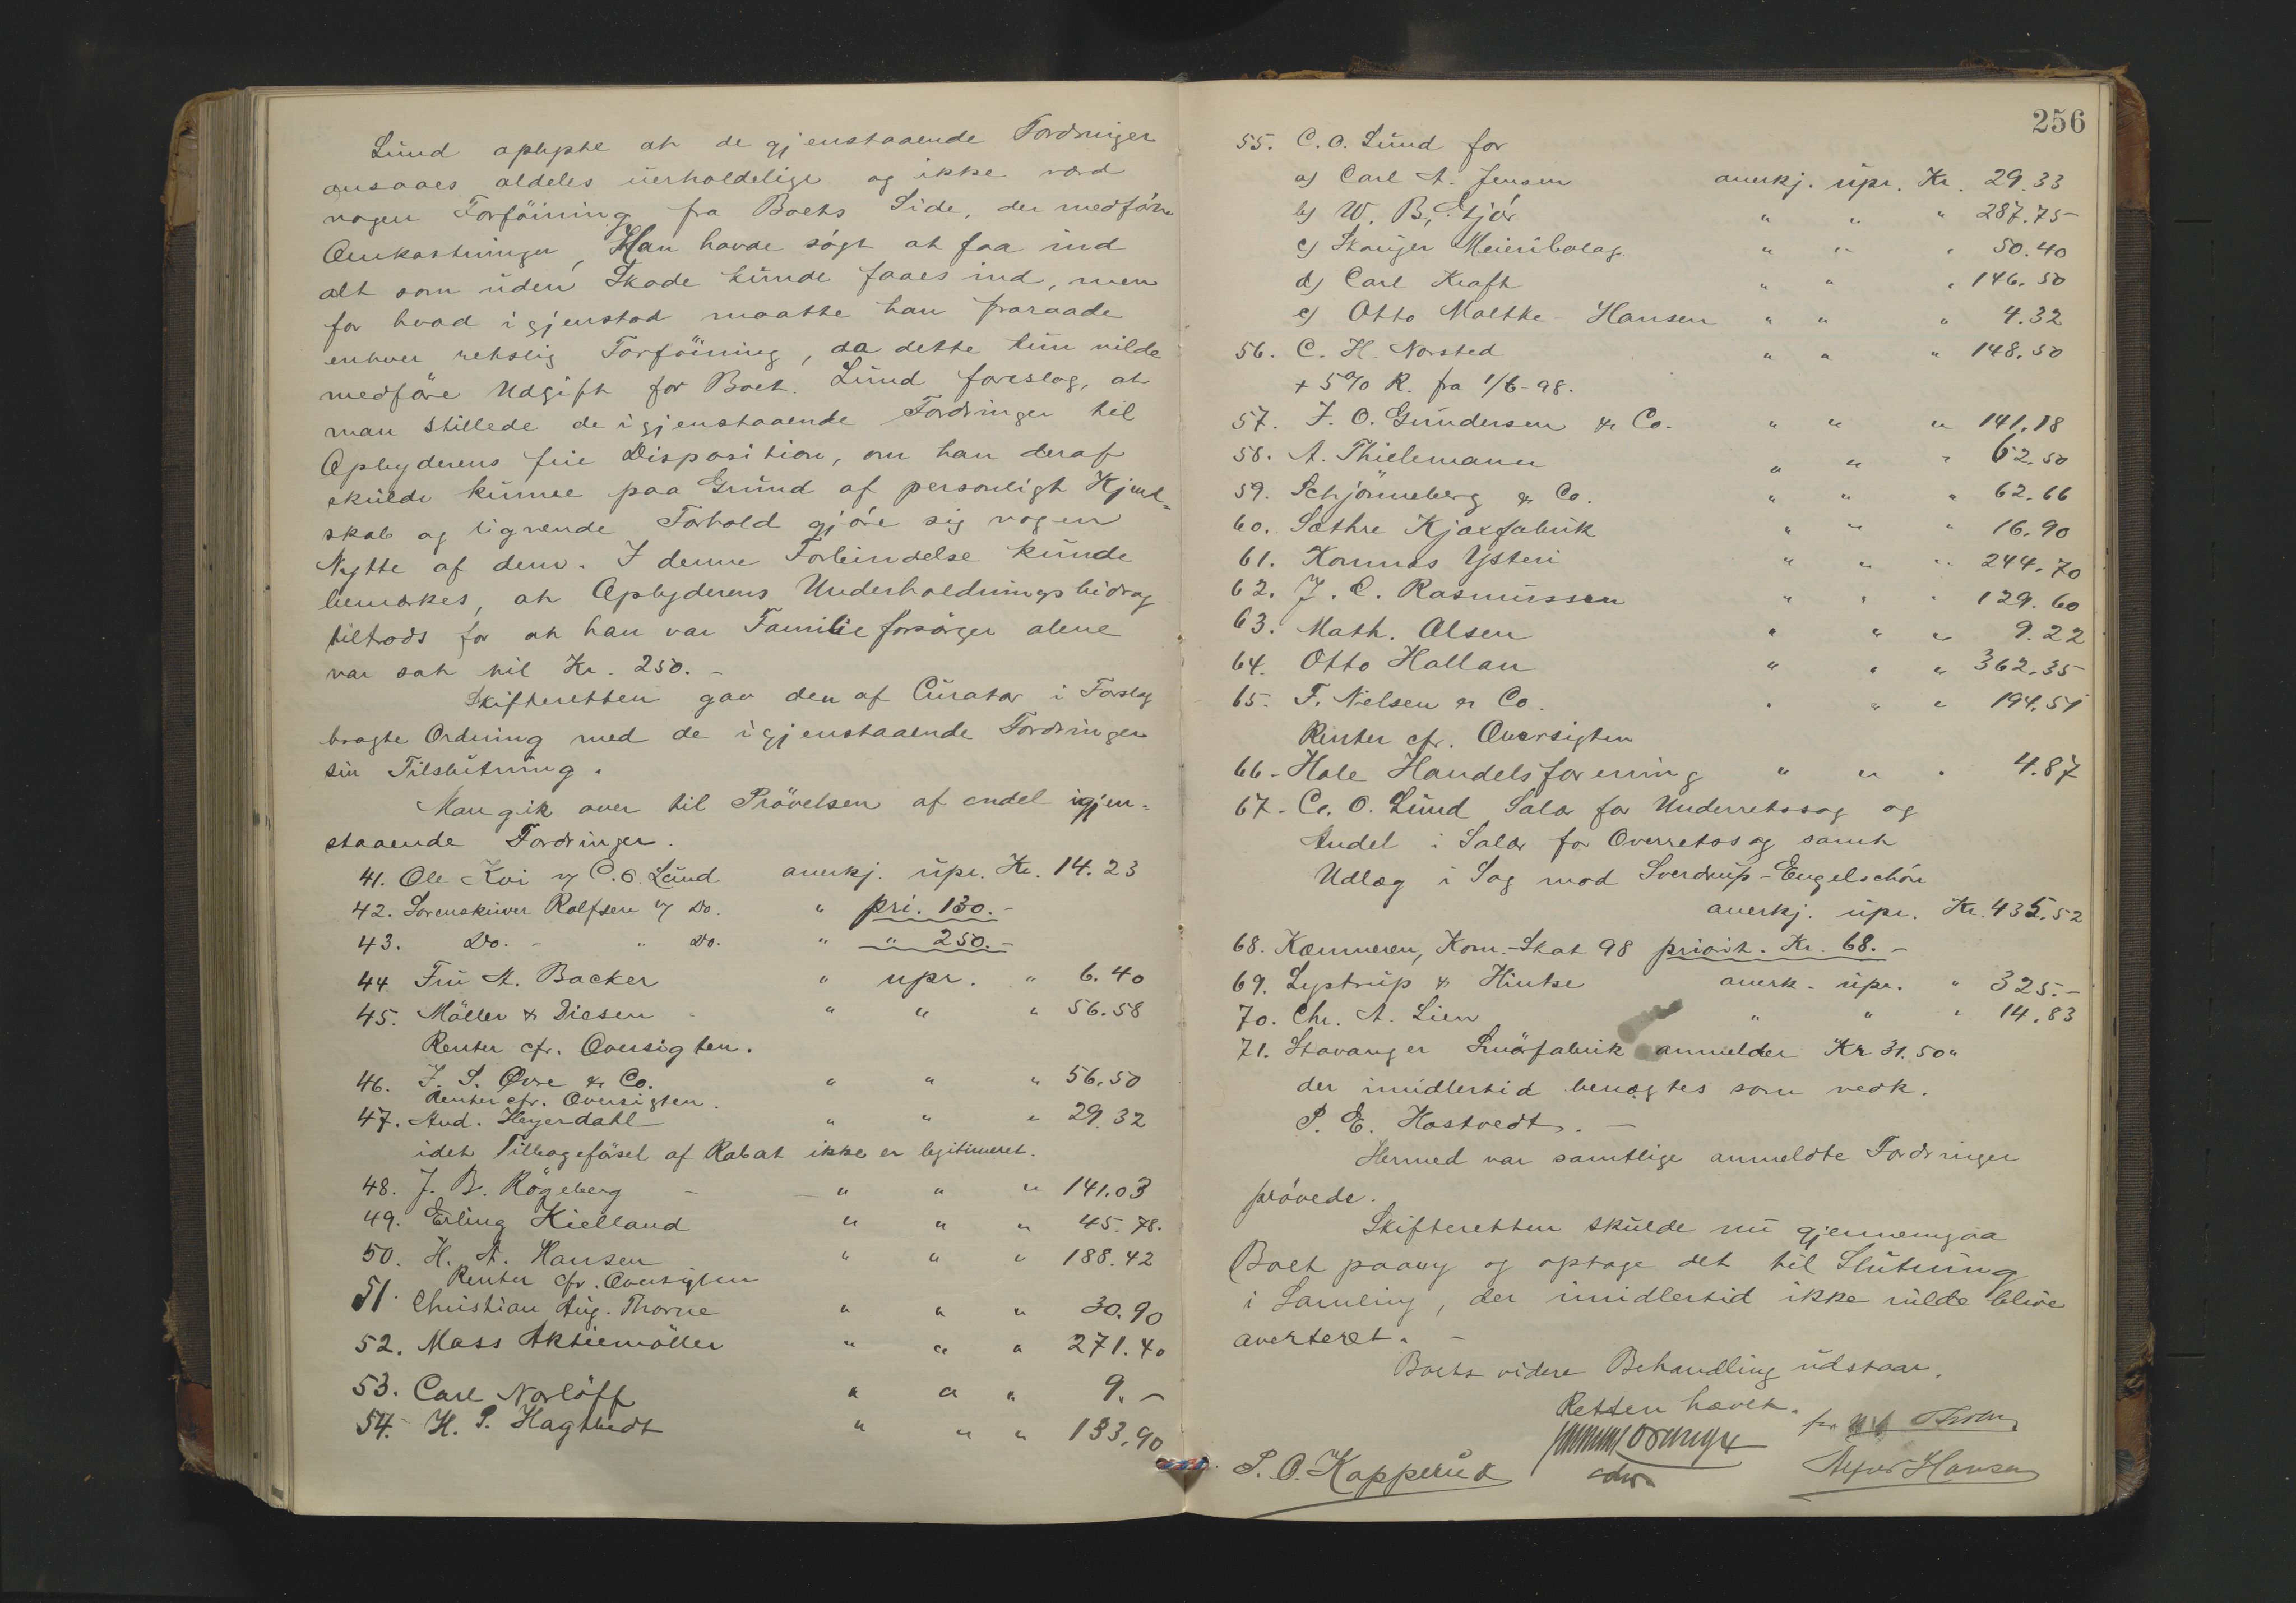 Lund oplyste at de gjenstaaende Fordringer
ansaaes aldeles uerholdelige og ikke værd
nogen Forföining fra Boets Side, der medförer
Omkostninger, Han havde sögt at faa ind
alt som uden Skade kunde faaes ind, men
for hvad igjenstod maatte han fraraade
enhver retslig Forföining, da dette kun vilde
medföre Udgift for Boet. Lund foreslog, at
man stillede de igjenstaaende Fordringer til
Opbyderens frie Disposition, om han deraf
skulde kunne paa Grund af personligt Kjend-
skab og lignende Forhold gjöre sig nogen
Nytte af dem. I denne Forbindelse kunde
bemærkes, at Opbyderens Underholdningsbidrag
tiltrods for at han var Familieforsörger alene
var sat til Kr. 250.-
Skifteretten gav den af Curator i Forslag
bragte Ordning med de igjenstaaende Fordringer
sin Tilslutning.
Man gik over til Prövelsen af endel igjen-
staaende Fordringer.
41. Ole Kvi v/ C. O. Lund anerkj. upr. Kr. 14.23
42. Sorenskriver Rolfsen v/ Do. " pri. 130.-
43. Do. - " Do. " " 250.-
44. Fru A. Backer " upr. " 6.40
45. Möller & Diesen " " " 56.58
Renter cfr. Oversigten.
46. J. S. Øvre & Co. " " " 56.50
Renter cfr. Oversigten.
47. And. Heyerdahl " " " 29.32
idet Tilbageförsel af Rabat ikke er legitimeret.
48. J. B. Rögeberg - - " " " 141.03
49. Erling Kielland " " " 45.78.
50. H. A. Hansen " " " 188.42
Renter cfr. Oversigten
51. Christian Aug. Thorne " " " 30.90
52. Moss Aktiemöller " " " 271.40
53. Carl Norlöff " " " 9.-
54. H. P. Hagtvedt " " " 133,90
256
55. C. O. Lund for
a) Carl A. Jensen anerkj. upr. Kr. 29.33
b) W. B. Stjör " " " 287.75
c) Stanger Meieribolag " " " 50.40
d) Carl Kraft " " " 146.50
e) Otto Moltke-Hansen " " " 4.32
56. C. H. Norsted " " " 148.50
+ 5% R. fra 1/6-98.
57. J. O. Gundersen & Co. " " " 141.18
58. A. Thielemann " " " 62.50
59. Schjönneberg & Co. " " " 62.66
60. Sæthre Kjæxfabrik " " " 16.90
61. Kornmos Ysteri " " " 244.70
62. J. C. Rasmussen " " " 129.60
63. Math. Olsen " " " 9.22
64. Otto Hallan " " " 362.35
65. F. Nielsen & Co. " " " 194.51
Renter cfr. Oversigten
66. Hole Handelsforening " " " 4.87
67. C. O. Lund Salær for Underretssag og
Andel i Salær for Overretssag samt
Udlæg i Sag mod Sverdrup-Engelschön
anerkj. upr. Kr. 435.52
68. Kæmneren, Kom.-Skat 98 priorit. Kr. 68.-
69. Lystrup & Hintze anerk. upr. " 325.-
70. Chr. A. Lien " " " 14.83
71. Stavanger Smörfabrik anmelder Kr 31.50"
der imidlertid benægtes som vedk.
P. E. Hostvedt. -
Hermed var samtlige anmeldte Fordringer
prövede.
Skifteretten skulde nu gjennemgaa
Boet paany og optage det til Slutning
i Samling, der imidlertid ikke vilde blive
averteret. -
Boets videre Behandling udstaar.
Retten hævet.
P. O. Kopperud
Hansen